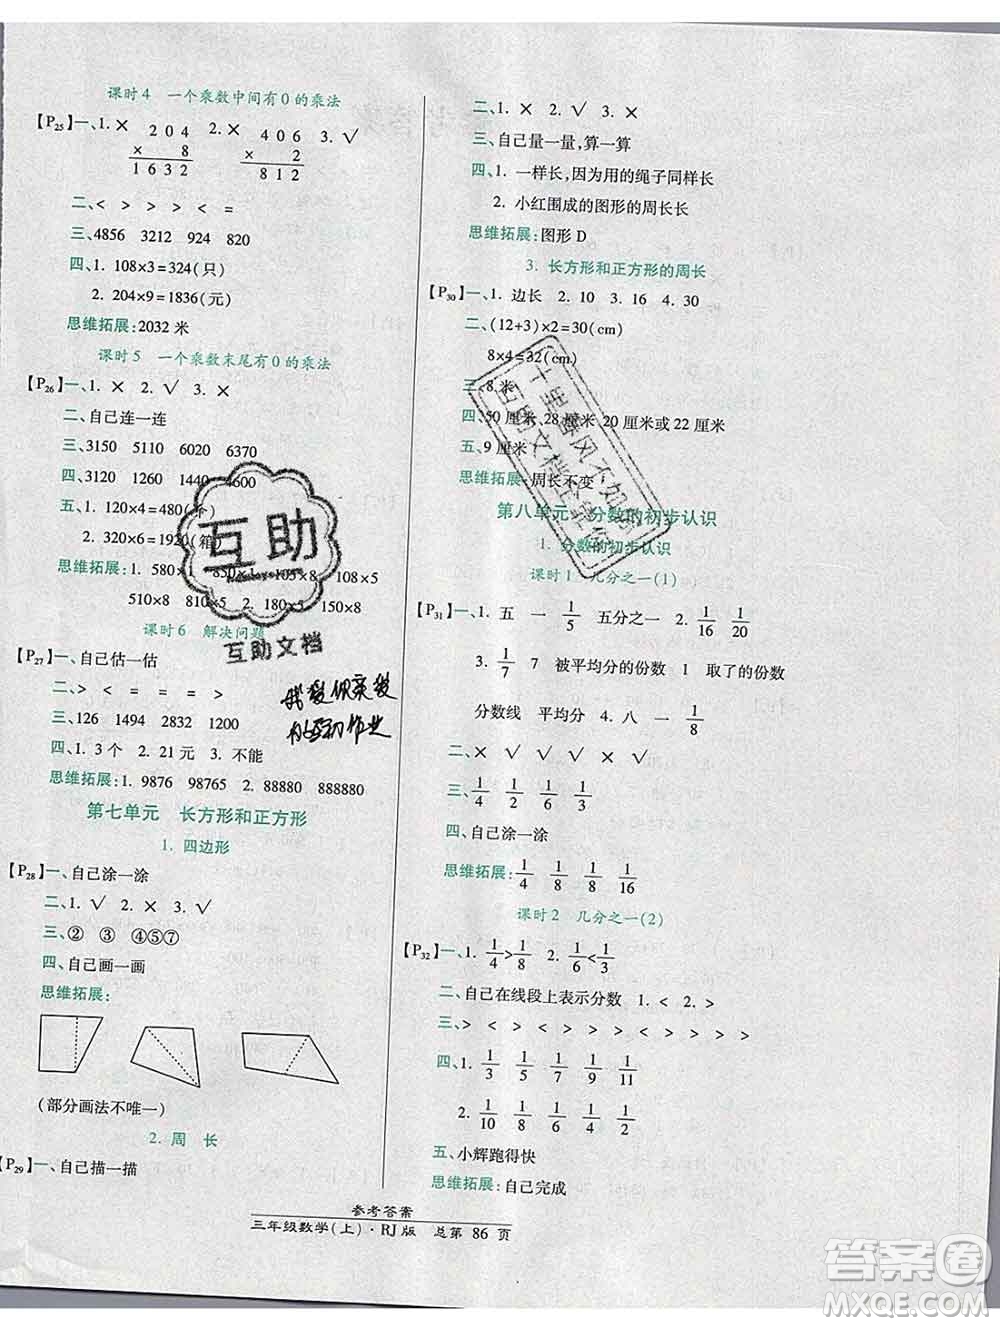 课时4 一个乘数中间有0的乘法
【P25】一、1. × 204 2. × 406 3. √
× 8 × 2
1632 812
二、< > > < =
三、4856 3212 924 820
四、1. 108×3=324(只)
2. 204×9=1836(元)
思维拓展:2032 米
课时5 一个乘数末尾有0的乘法
【P26】一、1. × 2. √ 3. ×
二、自己连一连
三、3150 5110 6020 6370
四、3280 1260 1440 4600
五、1. 120×4=480(个)
2. 320×6=1920(箱)
思维拓展:1. 580×1 105×8 108×5
510×8 810×5 2. 180×5 150×8
课时6 解决问题
【P27】一、自己估一估
二、> < = = = >
三、126 1494 2832 1200
四、1. 3个 2. 21元 3. 不能
思维拓展:1. 9876 98765 2. 88880 888880
第七单元 长方形和正方形
1. 四边形
【P28】一、自己涂一涂
二、1. √ 2. × 3. √
三、② ③ ④⑤⑦
四、自己画一画
思维拓展:
(部分画法不唯一)
2. 周 长
【P29】一、自己描一描
二、1. × 2. √ 3. ×
三、自己量一量,算一算
四、1. 一样长,因为用的绳子同样长
2. 小红围成的图形的周长长
思维拓展:图形 D
3. 长方形和正方形的周长
【P30】一、1. 边长 2. 10 3. 16 4. 30
二、(12+3)×2=30(cm)
8×4=32(cm)
三、8米
四、50 厘米、28 厘米、20 厘米或 22 厘米
五、9 厘米
思维拓展:周长不变
第八单元 分数的初步认识
1. 分数的初步认识
课时1 几分之一(1)
【P31】一、1. 五 一 1/5 五分之一 2. 1/16 1/20
3. 1/7 7 被平均分的份数 1 取了的份数
分数线 平均分 4. 八 一 1/8
二、× √ √ √ ×
三、1/4 1/2 1/6 1/8
四、自己涂一涂
思维拓展:1/4 1/8 1/8 1/16
课时2 几分之一(2)
【P32】一、1. 1/4>1/8 2. 1/6<1/3
二、自己在线段上表示分数 1. < 2. >
三、> < < > > > > > > >
四、1. 1/3 1/5 1/9 1/11
2. 1/10 1/8 1/6 1/4
五、小辉跑得快
思维拓展:自己完成
参考答案
三年级数学(上)·RJ版 总第 86 页
互助
互助文档
答案圈
MXQE.COM